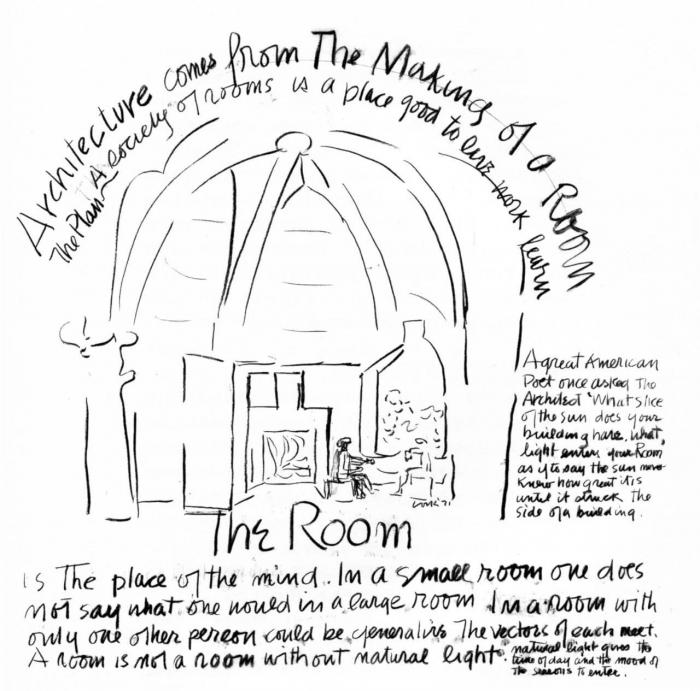 Architecture comes from The Making of a Room
The Plan A society of rooms is a place good to live work learn
A great American
Poet once asked The
Architect 'What slice
of the sun does your
building have, what
light enters your Room
as if to say the sun never
knew how great it is
until it struck the
side of a building.
Lou K '71
The Room
is The place of the mind. In a small room one does
not say what one would in a large room In a room with
only one other person could be generative The vectors of each meet.
A room is not a room without natural light.
natural light gives the
time of day and the mood of
the seasons to enter.